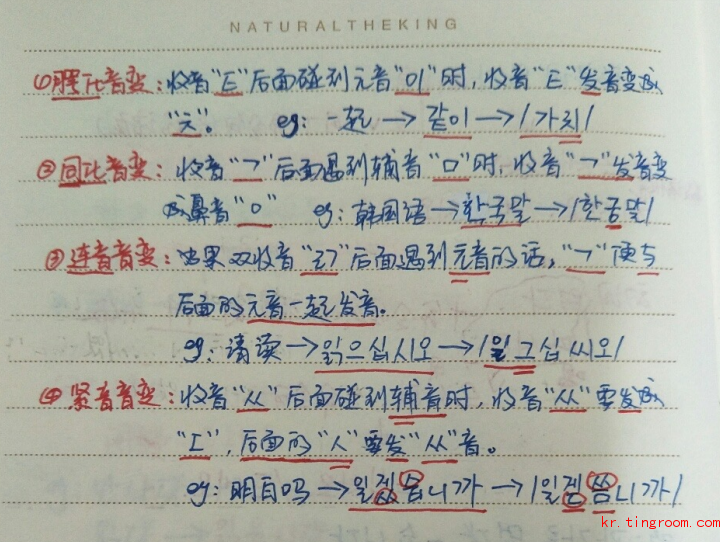 NATURALTHEKING
①腭化音变：收音"ㅌ"后面碰到元音"이"时，收音"ㅌ"发音变成
"ㅊ"。 eg：一起→같이→/가치/
②同化音变：收音"ㄱ"后面遇到辅音"ㅁ"时，收音"ㄱ"发音变
成鼻音"ㅇ" eg：韩国语→한국말→/한궁말/
③连音音变：如果双收音"ㄺ"后面遇到元音的话，"ㄱ"便与
后面的元音一起发音。
eg：请读→읽으십시오→/일그십씨오/
④紧音音变：收音"ㅆ"后面碰到辅音时，收音"ㅆ"要发成
"ㄷ"，后面的"ㅅ"要发"ㅆ"音。
eg：明白吗→일겠습니까→/일겓씀니까/
kr.tingroom.com